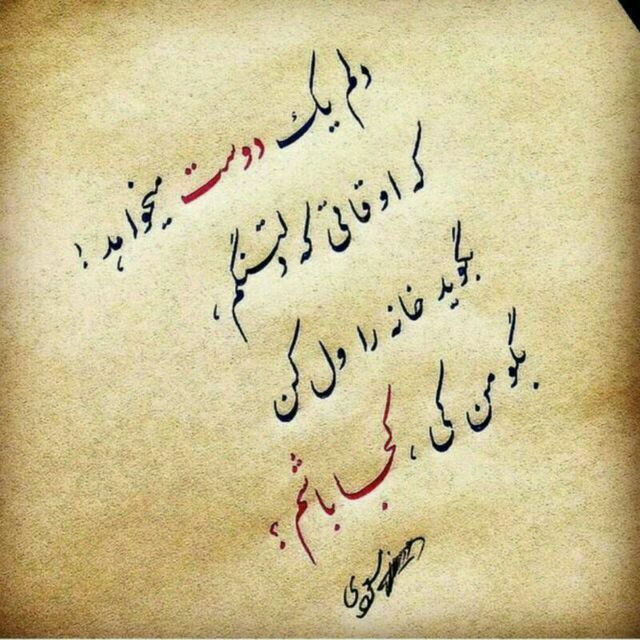 دلم یک دوست میخواهد !
که اوقاتی که دلتنگم ،
بگوید خانه را ول کن
بگو من کی ، کجا باشم ؟